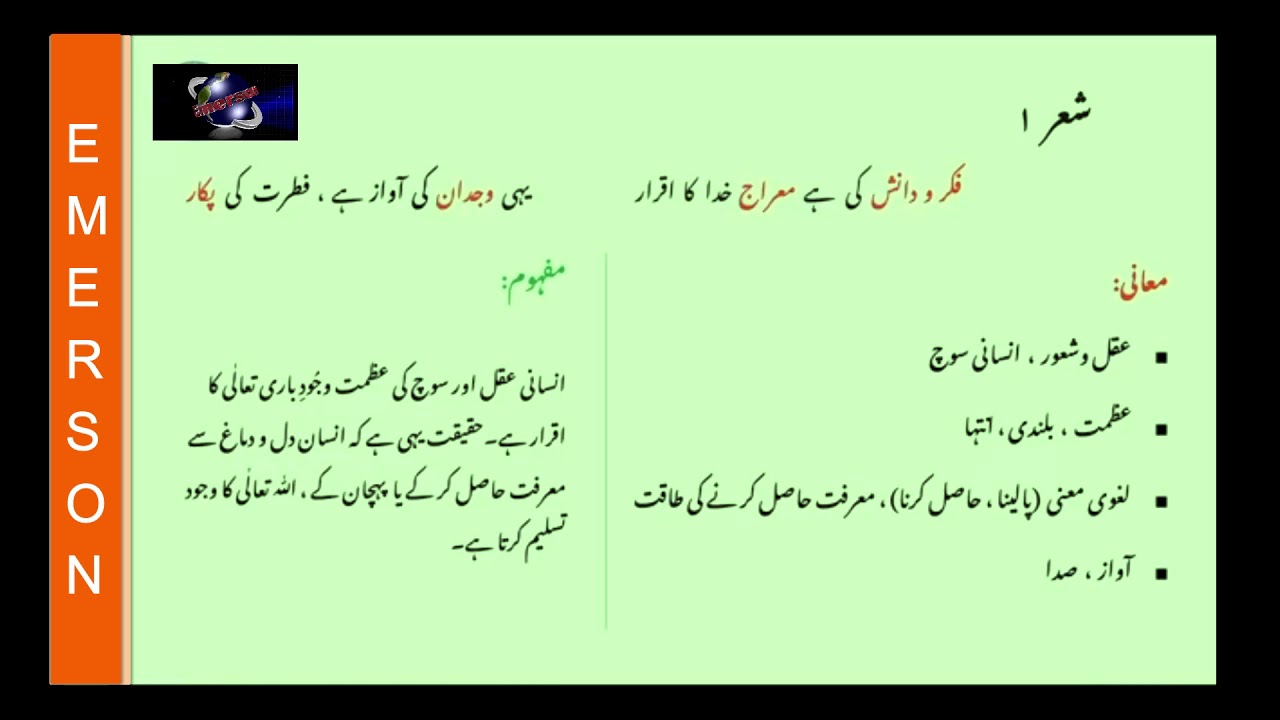 EMERSON
Emerson
شعر ۱
فکر و دانش کی ہے معراج خدا کا اقرار یہی وجدان کی آواز ہے ، فطرت کی پکار
معانی:
▪ عقل وشعور ، انسانی سوچ
▪ عظمت ، بلندی ، انتہا
▪ لغوی معنی (پالینا ، حاصل کرنا) ، معرفت حاصل کرنے کی طاقت
▪ آواز ، صدا
مفہوم:
انسانی عقل اور سوچ کی عظمت وجُودِ باری تعالٰی کا
اقرار ہے۔ حقیقت یہی ہے کہ انسان دل و دماغ سے
معرفت حاصل کر کے یا پہچان کے ، اللہ تعالٰی کا وجود
تسلیم کرتا ہے۔